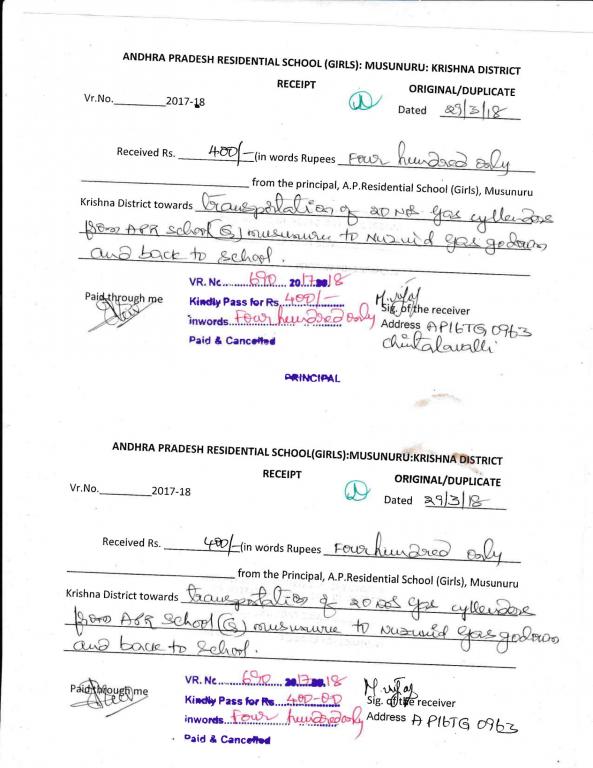 ANDHRA PRADESH RESIDENTIAL SCHOOL (GIRLS): MUSUNURU: KRISHNA DISTRICT
RECEIPT
ORIGINAL/DUPLICATE
Vr.No. 2017-18
Dated 29/3/18
Received Rs. 400/- (in words Rupees Four hundred only
from the principal, A.P.Residential School (Girls), Musunuru
Krishna District towards transportation of 20 Nos gas cyllenders
from APR school(G) musunuru to Nuzvid gas godown
and back to school.
VR. No. 690 2017-2018
Kindly Pass for Rs. 400/-
inwords Four hundred only
Paid & Cancelled
Paid through me
Sig. of the receiver
Address AP16TG 0963
Chintalavalli
PRINCIPAL
ANDHRA PRADESH RESIDENTIAL SCHOOL(GIRLS):MUSUNURU:KRISHNA DISTRICT
RECEIPT
ORIGINAL/DUPLICATE
Vr.No. 2017-18
Dated 29/3/18
Received Rs. 400/- (in words Rupees Four hundred only
from the Principal, A.P.Residential School (Girls), Musunuru
Krishna District towards transportation of 20 Nos gas cyllenders
from APR school(G) musunuru to Nuzvid gas godown
and back to school.
VR. No. 690 2017-2018
Kindly Pass for Rs. 400-00
inwords Four hundred only
Paid & Cancelled
Paid through me
Sig. of the receiver
Address AP16TG 0963